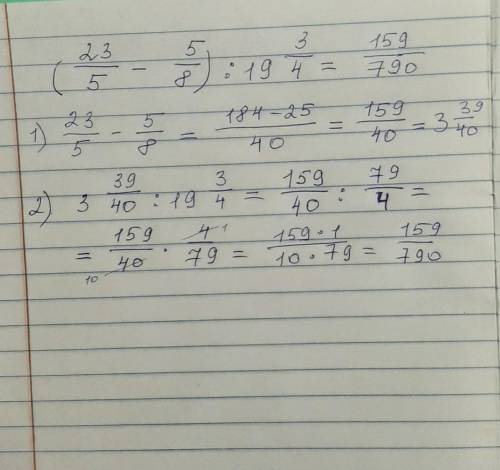 (23/5 - 5/8) : 19 3/4 = 159/790
1) 23/5 - 5/8 = 184-25/40 = 159/40 = 3 39/40
2) 3 39/40 : 19 3/4 = 159/40 : 79/4 =
= 159/40 10 · 4/79 1 = 159·1/10·79 = 159/790